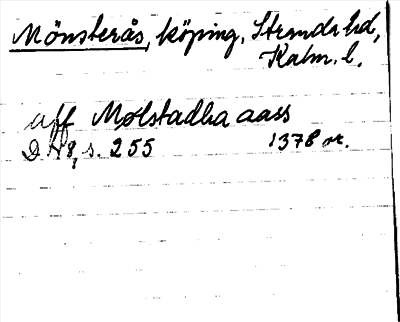 Mönsterås, köping, Stranda hd,
Kalm. l.
uff Mølstadha aass
D H 8, s. 255 1378 or.